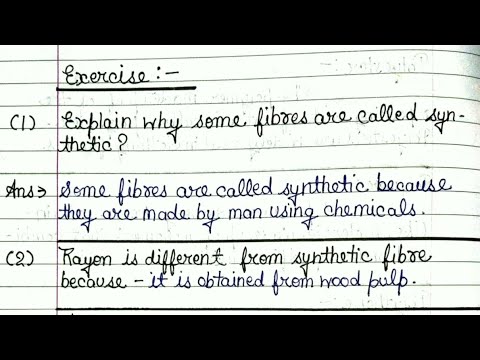 Exercise :-
(1) Explain why some fibres are called syn-
thetic?
Ans→ Some fibres are called synthetic because
they are made by man using chemicals.
(2) Rayon is different from synthetic fibre
because - it is obtained from wood pulp.